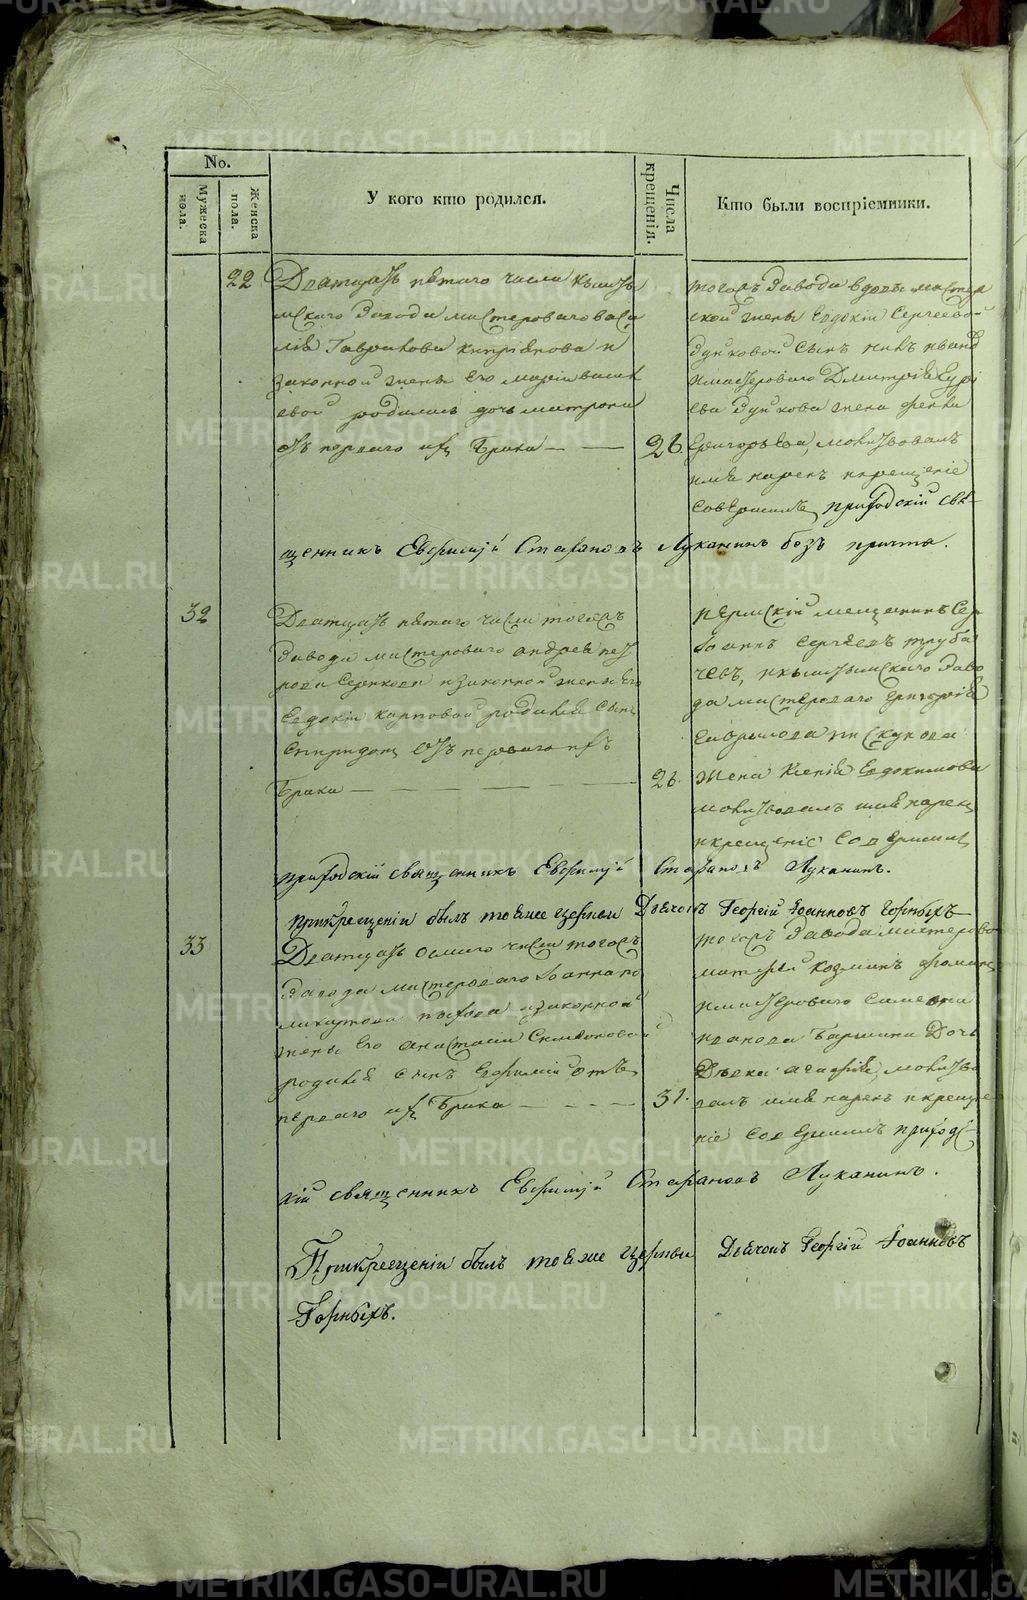 No.
Мужеска пола.
Женска пола.
У кого кто родился.
Числа крещенія.
Кто были воспріемники.
22
Дватцать пятаго числа Кышты
мскаго Завода мастероваго Васи
лія Гаврилова Киприянова и
законной жены Его Маріи Василі
евой родилась дочь Матрона
отъ перваго ихъ Брака
26.
тогожъ Завода вдовы мастер
ской жены Евдокіи Сергеевой
Зуйковой Сынъ
имастероваго Дмитрія
ева Зуйкова жена
Григорьева, молитвовалъ
имя нарекъ икрещеніе
Совершилъ приходскій свя-
щенникъ Евфимій Стефановъ Луканинъ безъ причта.
32
Дватцать пятаго числа тогожъ
Завода мастероваго Андрея Пет
рова и законной жены Его
Евдокіи Карповой родился Сынъ
Спиридонъ Отъ перваго ихъ
Брака
26.
Пермскій мещанинъ Сер
Сергеевъ Труба
чевъ, икыштымскаго Заво
да мастероваго Григорія
Гаврилова Пискунова
Жена Ксенія Евдокимова
молитвовалъ имя нарекъ
икрещеніе Совершилъ
приходскій священникъ Евфимій Стефановъ Луканинъ.
прикрещеніи былъ тояже церкви Дьячокъ Георгій Іоанновъ Горныхъ
33
Дватцать осмаго числа тогожъ
Завода мастероваго Іоанна
изаконной
жены Его Анастасіи Симеоновой
родился сынъ Евфимій отъ
перваго ихъ Брака
31.
тогожъ Завода мастерово
Козминъ
имастероваго Симеона
Иванова Дочь
Девка Агафія, молитво
валъ имя нарекъ икреще
ніе Совершилъ приходс-
кій священникъ Евфимій Стефановъ Луканинъ.
Прикрещеніи былъ тояже церкви Дьячокъ Георгій Іоанновъ
Горныхъ.
METRIKI.GASO-URAL.RU